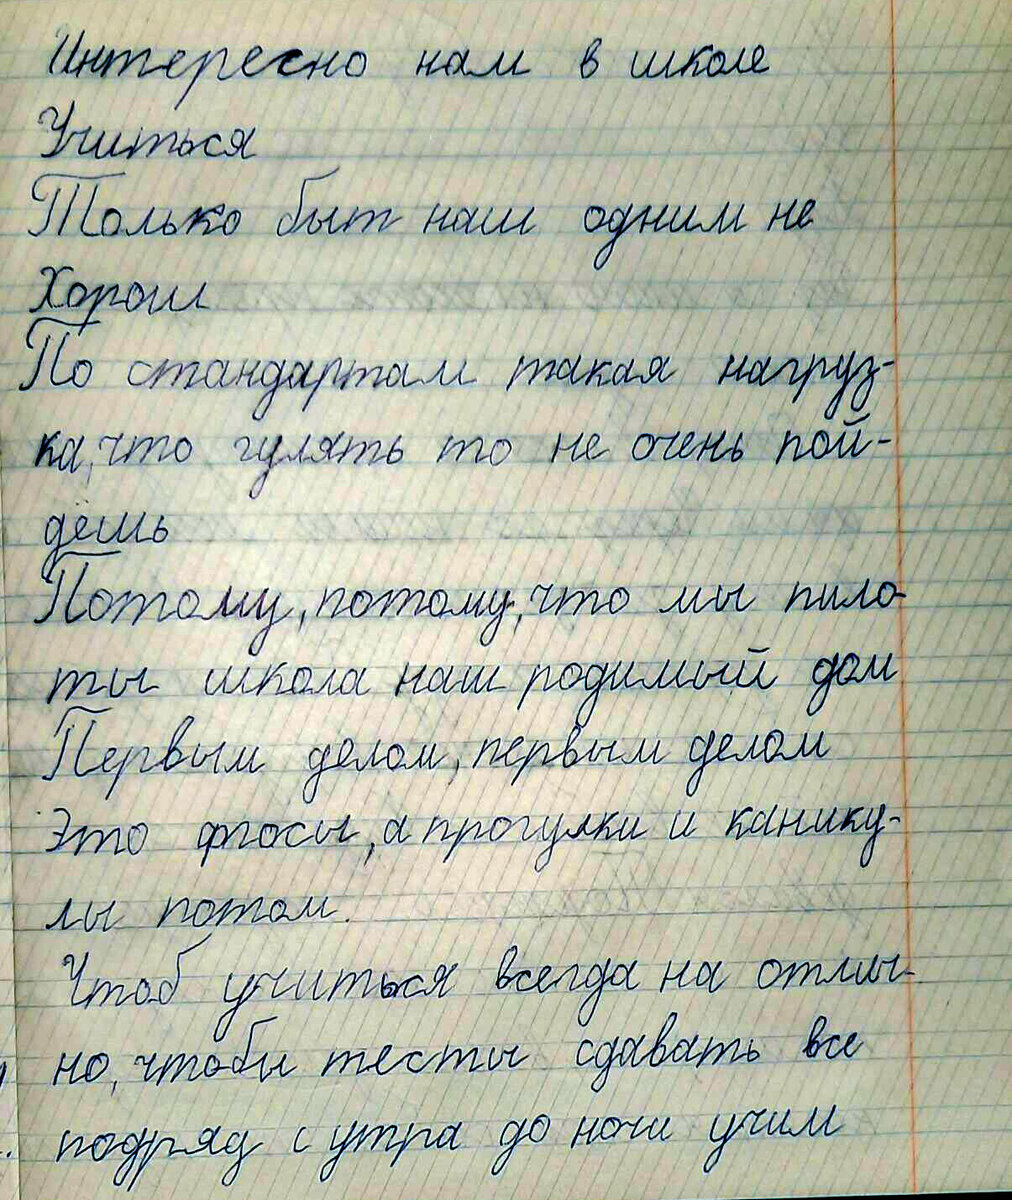 Интересно нам в школе
Учиться
Только быт наш одним не
Хорош
По стандартам такая нагруз-
ка, что гулять то не очень пой-
дёшь
Потому, потому, что мы пило-
ты школа наш родимый дом
Первым делом, первым делом
Это фгосы, а прогулки и канику-
лы потом.
Чтоб учиться всегда на отлич-
но, чтобы тесты сдавать все
подряд с утра до ночи учим